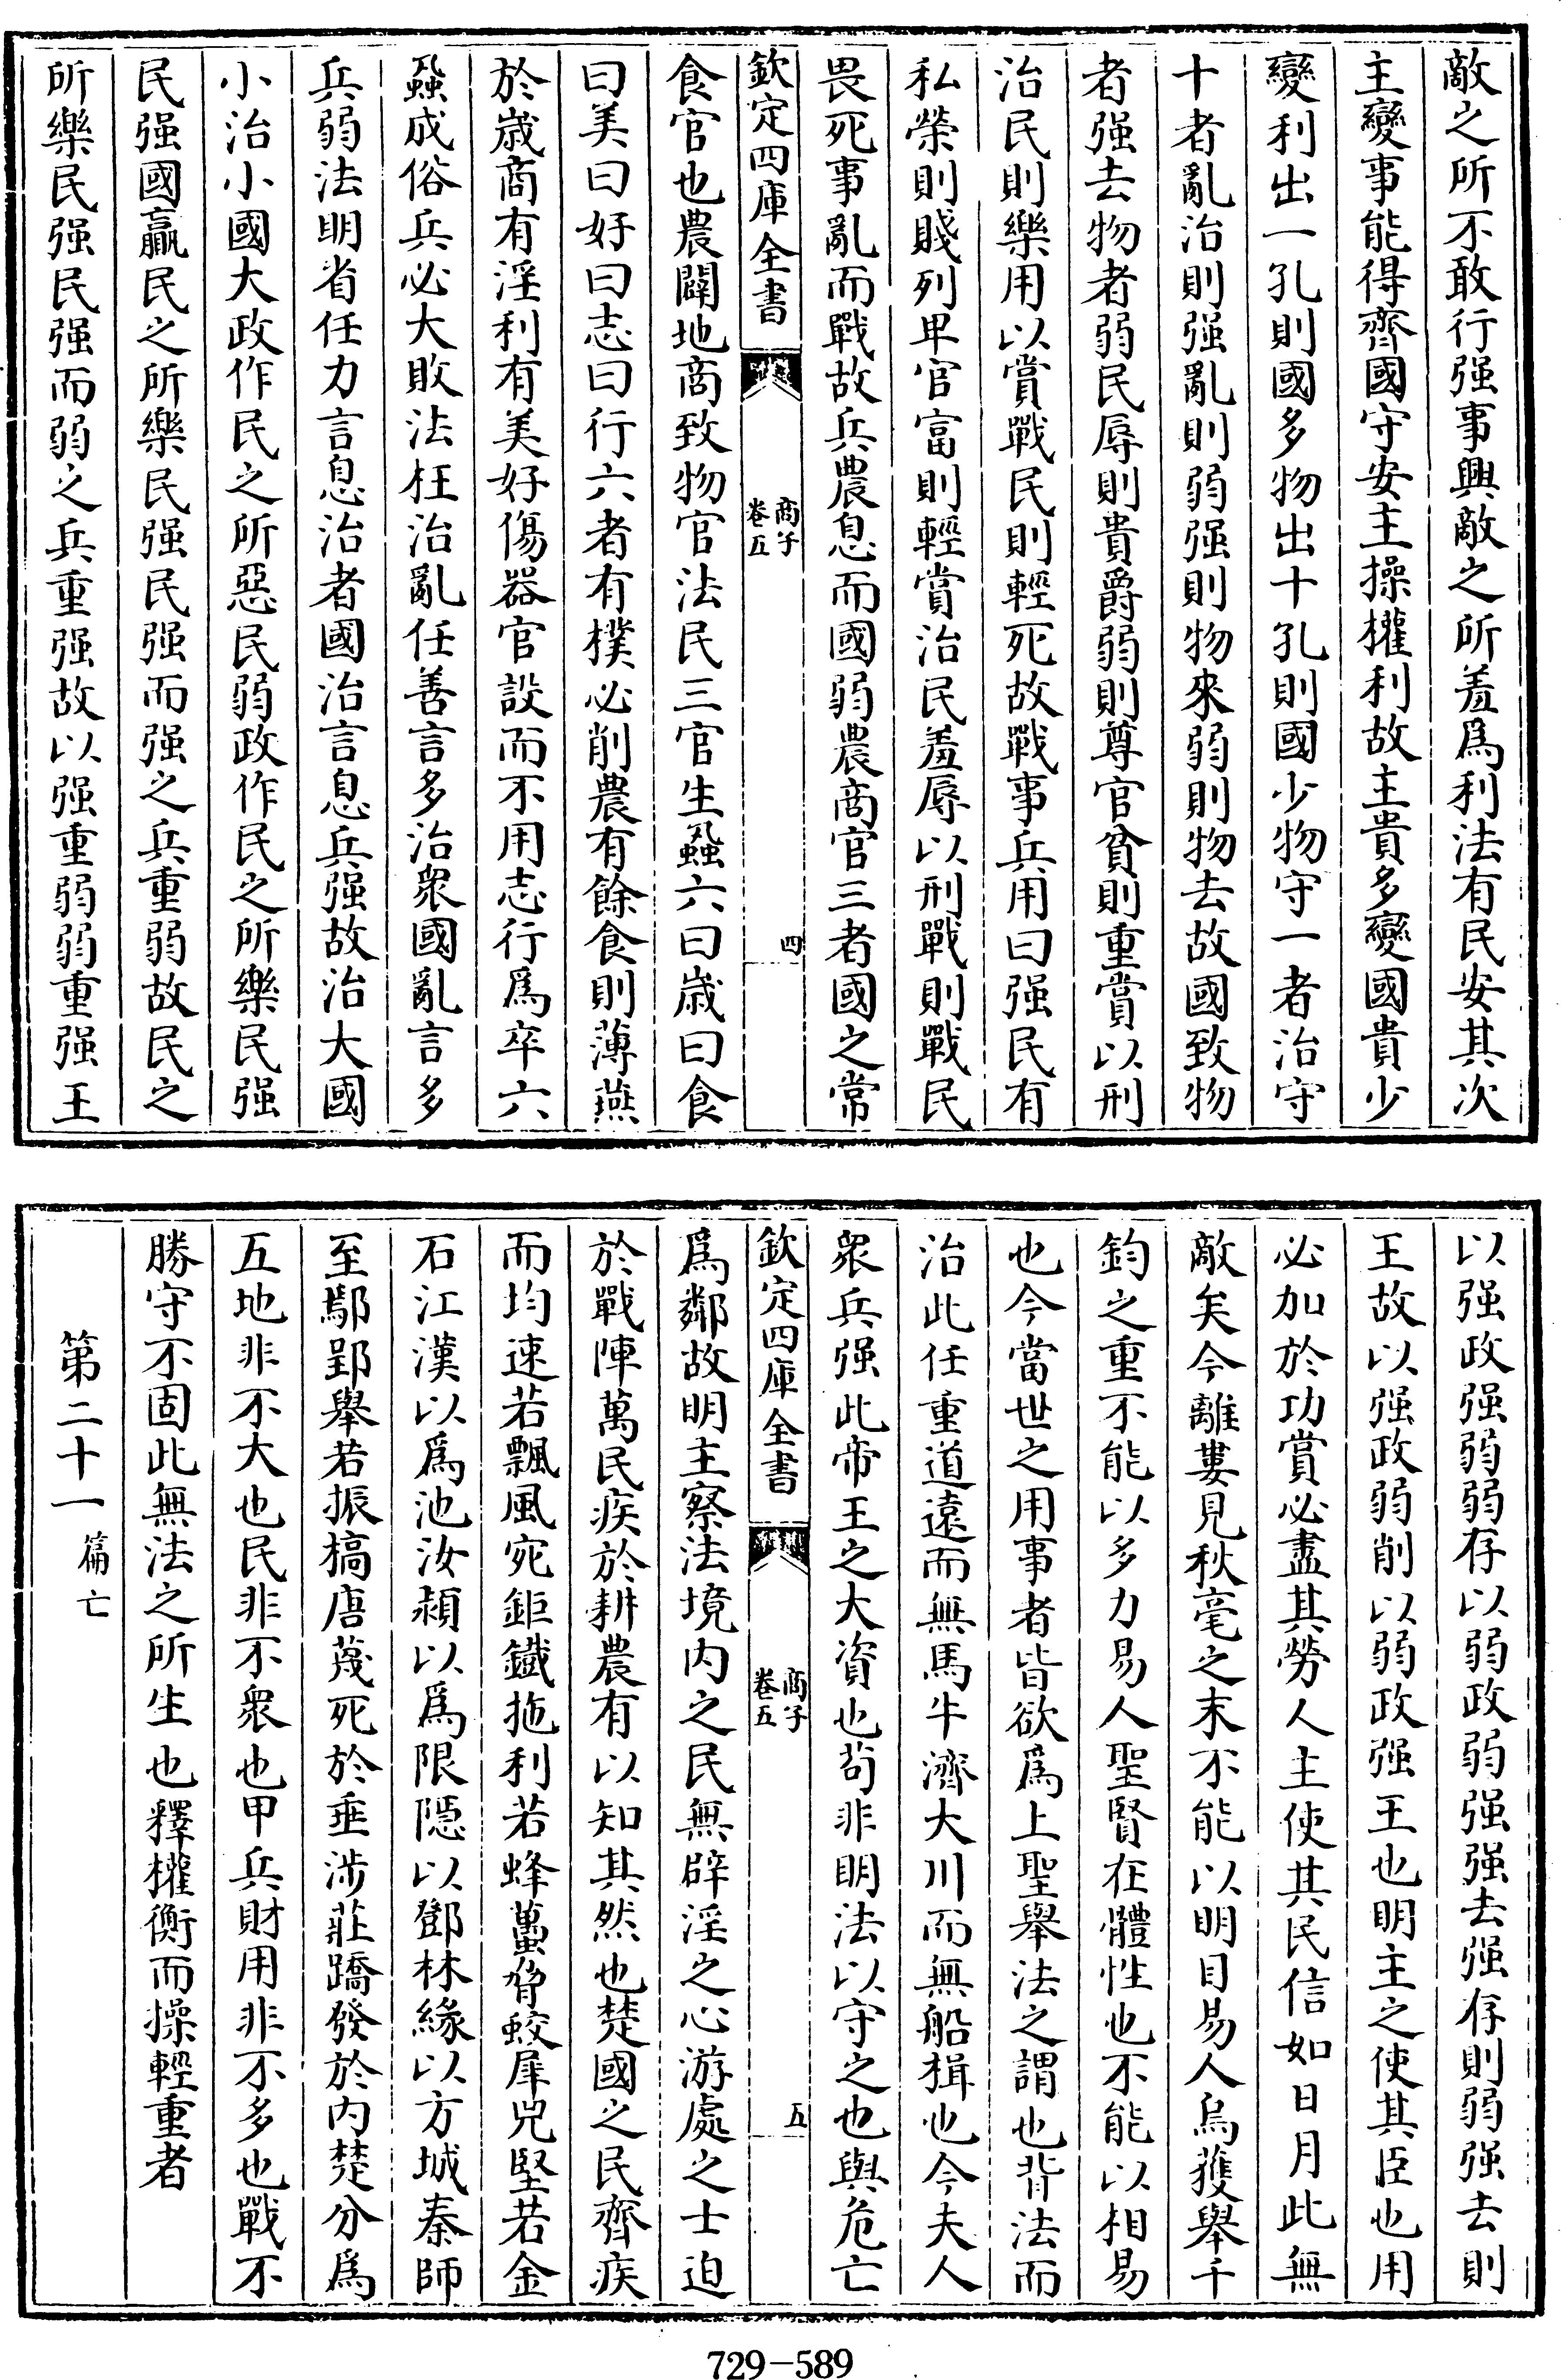 敵之所不敢行强事興敵之所羞爲利法有民安其次
主變事能得齊國守安主操權利故主貴多變國貴少
變利出一孔則國多物出十孔則國少物守一者治守
十者亂治則强亂則弱强則物來弱則物去故國致物
者强去物者弱民辱則貴爵弱則尊官貧則重賞以刑
治民則樂用以賞戰民則輕死故戰事兵用曰强民有
私榮則賤列卑官富則輕賞治民羞辱以刑戰則戰民
畏死事亂而戰故兵農息而國弱農商官三者國之常
欽定四庫全書
商子
卷五
四
食官也農闢地商致物官法民三官生蝨六曰歲曰食
曰美曰好曰志曰行六者有樸必削農有餘食則薄燕
於歲商有淫利有美好傷器官設而不用志行爲卒六
蝨成俗兵必大敗法枉治亂任善言多治衆國亂言多
兵弱法明省任力言息治者國治言息兵强故治大國
小治小國大政作民之所惡民弱政作民之所樂民强
民强國贏民之所樂民强民强而强之兵重弱故民之
所樂民强民强而弱之兵重强故以强重弱弱重强王
以强政强弱弱存以弱政弱强强去强存則弱强去則
王故以强政弱削以弱政强王也明主之使其臣也用
必加於功賞必盡其勞人主使其民信如日月此無
敵矣今離婁見秋毫之末不能以明目易人烏獲舉千
鈞之重不能以多力易人聖賢在體性也不能以相易
也今當世之用事者皆欲爲上聖舉法之謂也背法而
治此任重道遠而無馬牛濟大川而無船楫也今夫人
衆兵强此帝王之大資也苟非明法以守之也與危亡
欽定四庫全書
商子
卷五
五
爲鄰故明主察法境内之民無辟淫之心游處之士迫
於戰陣萬民疾於耕農有以知其然也楚國之民齊疾
而均速若飄風宛鉅鐵拖利若蜂蠆脅蛟犀兕堅若金
石江漢以爲池汝潁以爲限隱以鄧林緣以方城秦師
至鄢郢舉若振槁唐蔑死於垂涉莊蹻發於内楚分爲
五地非不大也民非不衆也甲兵財用非不多也戰不
勝守不固此無法之所生也釋權衡而操輕重者
第二十一篇亡
729-589